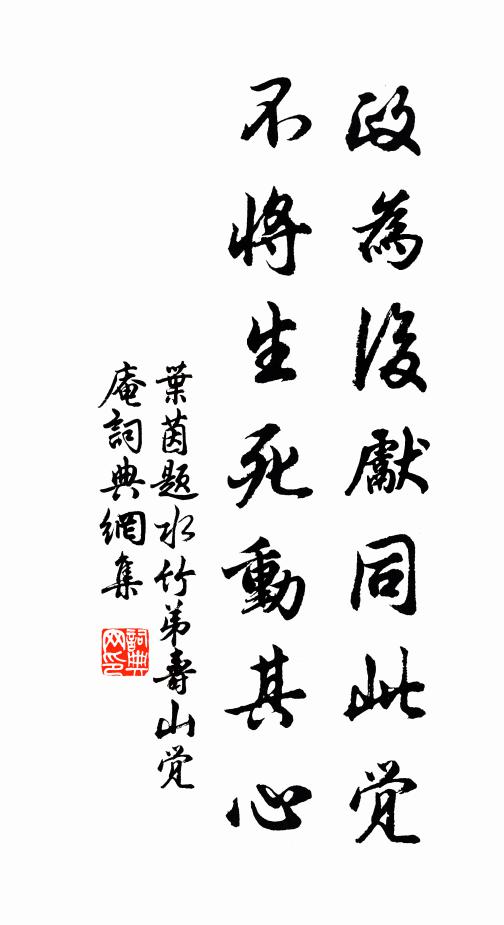 政為後獻同此觉
不將生死動其心
葉茵題水竹弟壽山觉
庵詞典網集
詞典
网印